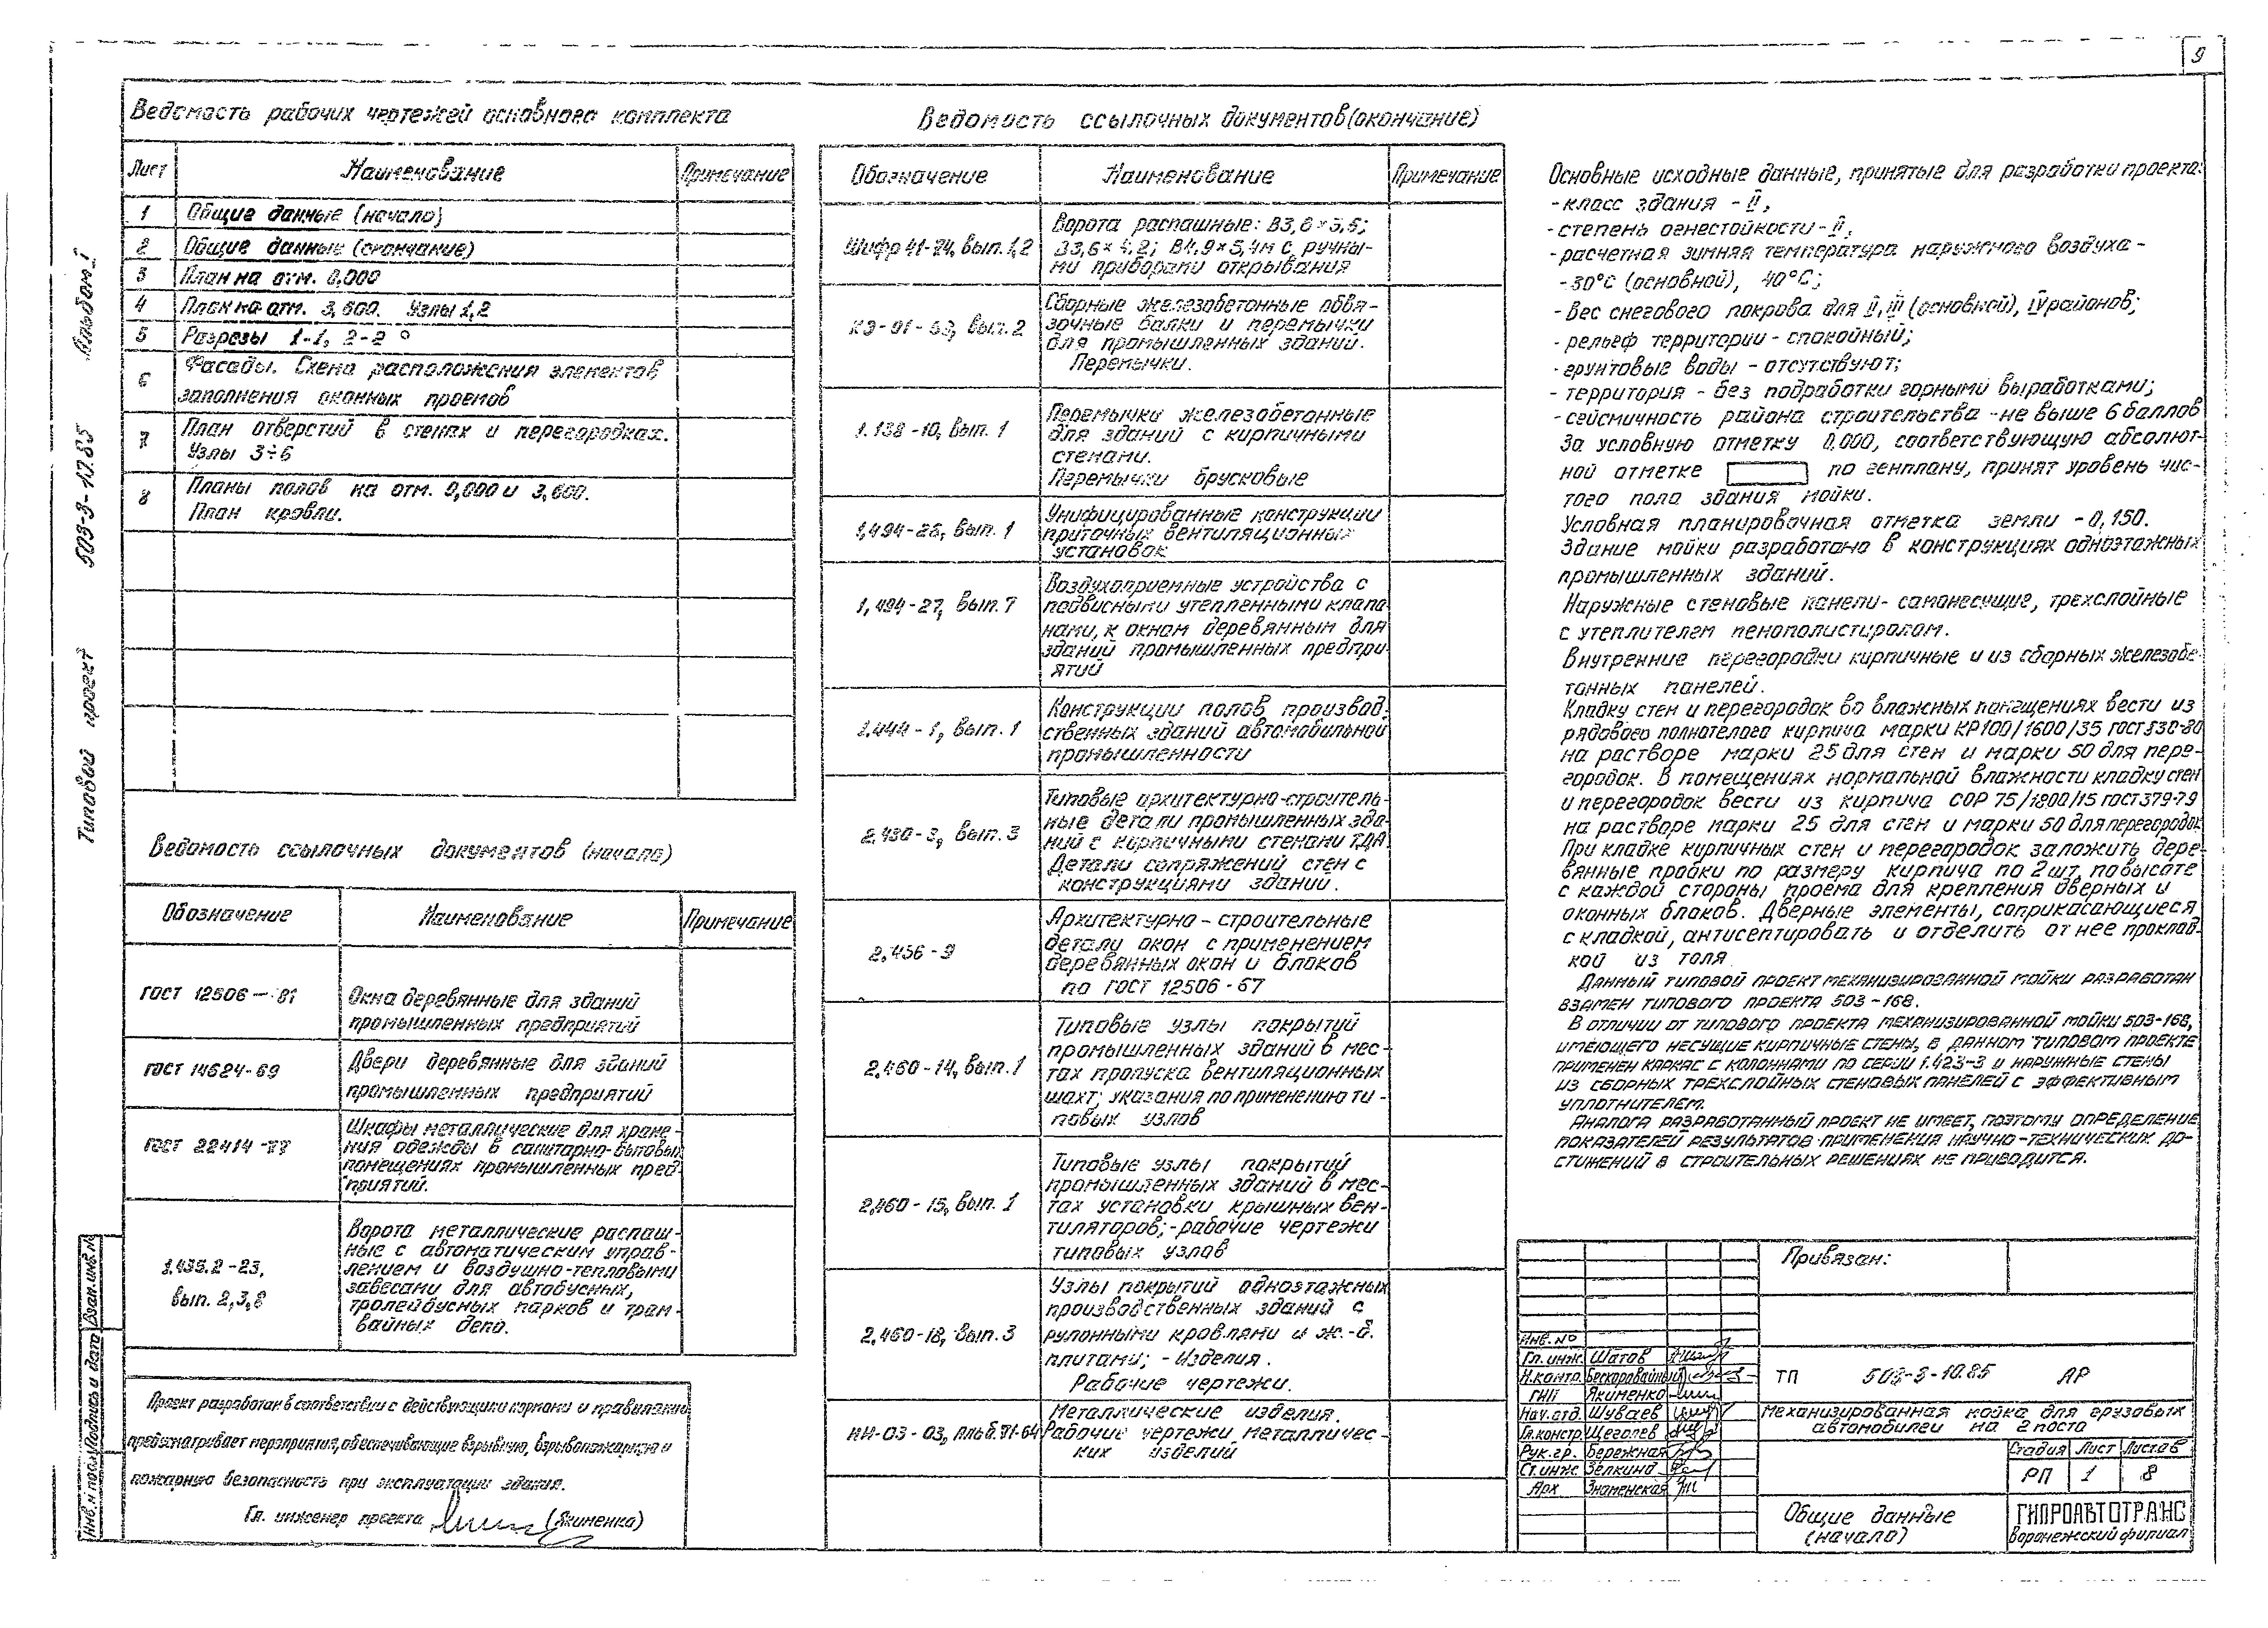 9
Ведомость рабочих чертежей основного комплекта
Лист Наименование Примечание
1 Общие данные (начало)
2 Общие данные (окончание)
3 План на отм. 0,000
4 План на отм. 3,600. Узлы 1,2
5 Разрезы 1-1, 2-2
6 Фасады. Схема расположения элементов
заполнения оконных проемов
7 План отверстий в стенах и перегородках.
Узлы 3÷6
8 Планы полов на отм. 0,000 и 3,600.
План кровли.
Ведомость ссылочных документов (начало)
Обозначение Наименование Примечание
ГОСТ 12506-81 Окна деревянные для зданий
промышленных предприятий
ГОСТ 14624-69 Двери деревянные для зданий
промышленных предприятий
ГОСТ 22414-77 Шкафы металлические для хране-
ния одежды в санитарно-бытовых
помещениях промышленных пред-
приятий.
1.435.2-23,
вып. 2,3,8
Ворота металлические распаш-
ные с автоматическим управ-
лением и воздушно-тепловыми
завесами для автобусных,
тролейбусных парков и трам-
вайных депо.
Проект разработан в соответствии с действующими нормами и правилами
предусматривает мероприятия, обеспечивающие взрывную, взрывопожарную и
пожарную безопасность при эксплуатации здания.
Гл. инженер проекта (Якименко)
Ведомость ссылочных документов (окончание)
Обозначение Наименование Примечание
Шифр 41-74, вып. 1,2
Ворота распашные: В3,6×3,6;
В3,6×4,2; В4,9×5,4м с ручны-
ми приборами открывания
КЭ-01-53, вып. 2
Сборные железобетонные обвя-
зочные балки и перемычки
для промышленных зданий.
Перемычки.
1.138-10, вып. 1
Перемычки железобетонные
для зданий с кирпичными
стенами.
Перемычки брусковые
1.494-26, вып. 1
Унифицированные конструкции
приточных вентиляционных
установок
1.494-27, вып. 7
Воздухоприемные устройства с
подвисными утепленными клапа
нами, к окнам деревянным для
зданий промышленных предпри
ятий
1.444-1, вып. 1
Конструкции полов производ.
ственных зданий автомобильной
промышленности
2.430-3, вып. 3
Типовые архитектурно-строитель-
ные детали промышленных зда-
ний с кирпичными стенами ТДА
Детали сопряжений стен с
конструкциями зданий.
2.456-9
Архитектурно-строительные
детали окон с применением
деревянных окон и блоков
по ГОСТ 12506-67
2.460-14, вып. 1
Типовые узлы покрытий
промышленных зданий в мес-
тах пропуска вентиляционных
шахт; указания по применению ти-
повых узлов
2.460-15, вып. 1
Типовые узлы покрытий
промышленных зданий в мес-
тах установки крышных вен-
тиляторов; -рабочие чертежи
типовых узлов
2.460-18, вып. 3
Узлы покрытий одноэтажных
производственных зданий с
рулонными кровлями и ж.-б.
плитами; - Изделия.
Рабочие чертежи.
ИИ-03-03, альб. 71-64
Металлические изделия.
Рабочие чертежи металличес-
ких изделий
Основные исходные данные, принятые для разработки проекта:
-класс здания - II,
-степень огнестойкости - II,
-расчетная зимняя температура наружного воздуха -
-30°С (основной), 40°С;
-вес снегового покрова для II, III (основной), IV районов;
-рельеф территории - спокойный;
-грунтовые воды - отсутствуют;
-территория - без подработки горными выработками;
-сейсмичность района строительства -не выше 6 баллов
За условную отметку 0,000, соответствующую абсолют-
ной отметке по генплану, принят уровень чис-
того пола здания мойки.
Условная планировочная отметка земли -0,150.
Здание мойки разработано в конструкциях одноэтажных
промышленных зданий.
Наружные стеновые панели - самонесущие, трехслойные
с утеплителем пенополистиролом.
Внутренние перегородки кирпичные и из сборных железобе-
тонных панелей.
Кладку стен и перегородок во влажных помещениях вести из
рядового полнотелого кирпича марки КР100/1600/35 ГОСТ 530-80
на растворе марки 25 для стен и марки 50 для пере-
городок. В помещениях нормальной влажности кладку стен
и перегородок вести из кирпича СОР 75/1800/15 ГОСТ 379-79
на растворе марки 25 для стен и марки 50 для перегородок
При кладке кирпичных стен и перегородок заложить дере-
вянные пробки по размеру кирпича по 2шт, по высоте
с каждой стороны проема для крепления дверных и
оконных блоков. Дверные элементы, соприкасающиеся
с кладкой, антисептировать и отделить от нее проклад-
кой из толя.
Данный типовой проект механизированной мойки разработан
взамен типового проекта 503-168.
В отличии от типового проекта механизированной мойки 503-168,
имеющего несущие кирпичные стены, в данном типовом проекте
применен каркас с колоннами по серии 1.423-3 и наружные стены
из сборных трехслойных стеновых панелей с эффективным
уплотнителем.
Аналога разработанный проект не имеет, поэтому определение
показателей результатов применения научно-технических до-
стижений в строительных решениях не приводится.
Привязан:
Инв. №
Гл. инж. Шатов
Н.контр. Бескоровайный
ГИП Якименко
Нач. отд. Шуваев
Гл.констр. Щеголев
Рук. гр. Бережная
Ст. инж. Зелкинд
Арх Знаменская
ТП 503-3-10.85 АР
Механизированная мойка для грузовых
автомобилей на 2 поста
Стадия Лист Листов
РП 1 8
Общие данные
(начало)
ГИПРОАВТОТРАНС
Воронежский филиал
Типовой проект 503-3-10.85 Альбом I
Инв. № подл. Подпись и дата Взам. инв. №